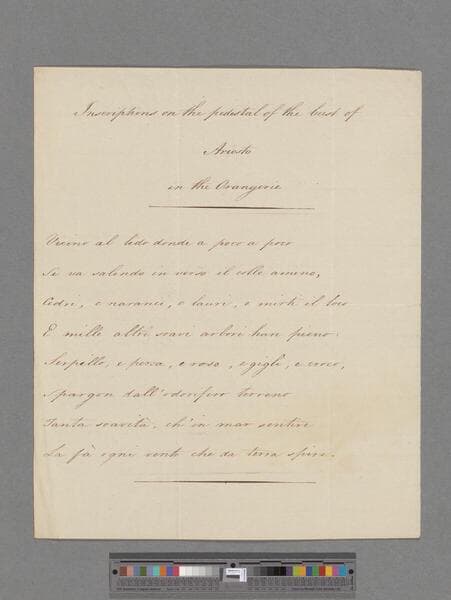 Inscriptions on the pedestal of the bust of
Ariosto
in the Orangerie
Vicino al lido donde a poco a poco
Se va salendo in verso il colle ameno,
Cedri, e naranci, e lauri, e mirti il loco
E mille altri soavi arbori han pieno:
Serpillo, e persa, e rose, e gigli, e croco,
Spargon dall'odorifero terreno
Tanta soavità, ch'in mar sentire
La fà ogni vento che da terra spire.